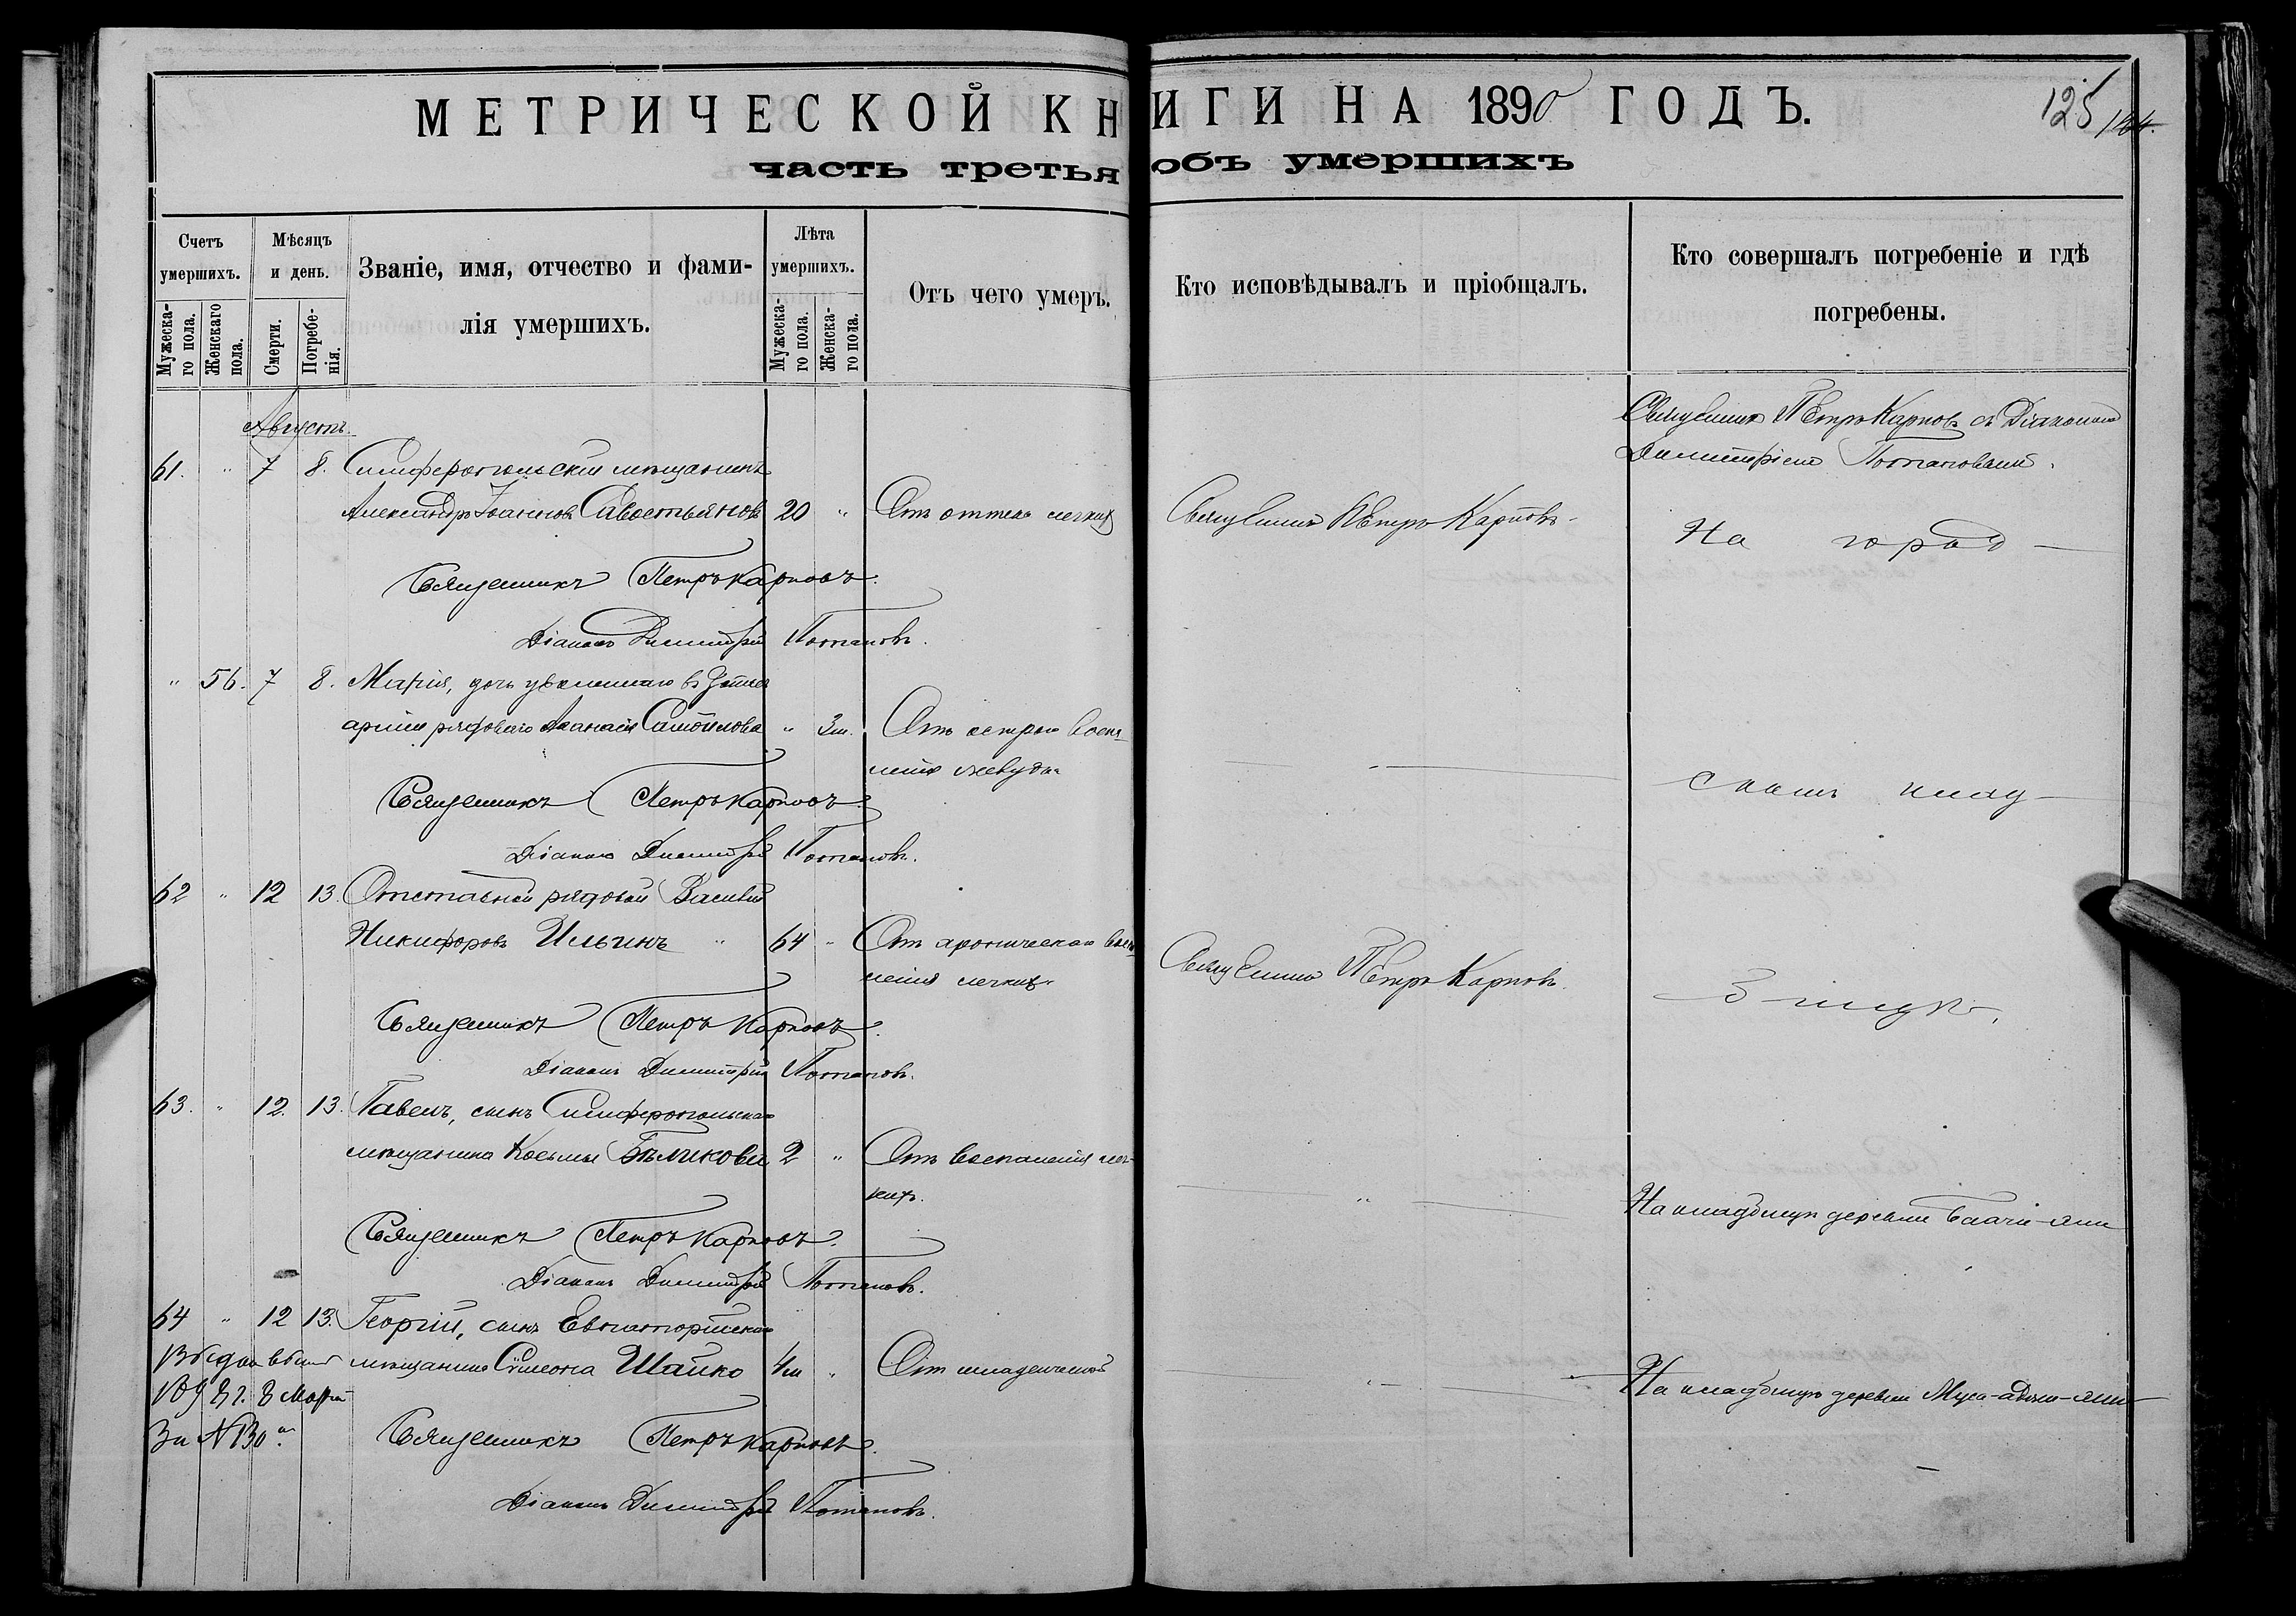 МЕТРИЧЕСКОЙ КНИГИ НА 1890 ГОДЪ.
125
часть третья объ умершихъ
Счетъ умершихъ.
Мужеска-
го пола.
Женскаго
пола.
Мѣсяцъ
и день.
Смерти.
Погребе-
нія.
Званіе, имя, отчество и фами-
лія умершихъ.
Лѣта
умершихъ.
Мужеска-
го пола.
Женска-
го пола.
Отъ чего умеръ.
Кто исповѣдывалъ и пріобщалъ.
Кто совершалъ погребеніе и гдѣ
погребены.
Августъ.
Священникъ Петръ Карповъ съ Діакономъ
Димитріемъ Потаповымъ.
61. " 7 8. Симферопольскій мѣщанинъ
Александръ Іоанновъ Савостьяновъ 20 " Отъ отека легкихъ Священникъ Петръ Карповъ
На город
Священникъ Петръ Карповъ.
Діаконъ Димитрій Потаповъ.
" 56. 7 8. Марія, дочь уволеннаго въ
арміи рядового Аѳанасія Самойлова " 3 м. Отъ остраго воспа-
ленія желудка
скомъ клад
Священникъ Петръ Карповъ.
Діаконъ Димитрій Потаповъ.
62 " 12 13. Отставной рядовой Василій
Никифоровъ Ильинъ " 64 " Отъ хроническаго воспа-
ленія легкихъ Священникъ Петръ Карповъ.
бищѣ.
Священникъ Петръ Карповъ.
Діаконъ Димитрій Потаповъ.
63. " 12. 13. Павелъ, сынъ Симферопольскаго
мѣщанина Косьмы Бѣликова 2 " Отъ воспаленія лег-
кихъ.
На кладбищѣ деревни
Священникъ Петръ Карповъ.
Діаконъ Димитрій Потаповъ.
64 " 12 13. Георгій, сынъ Евпаторійскаго
мѣщанина Сѵмеона Шайко 4 м " Отъ младенческой
На кладбищѣ деревни
за № 130
Священникъ Петръ Карповъ.
Діаконъ Димитрій Потаповъ.